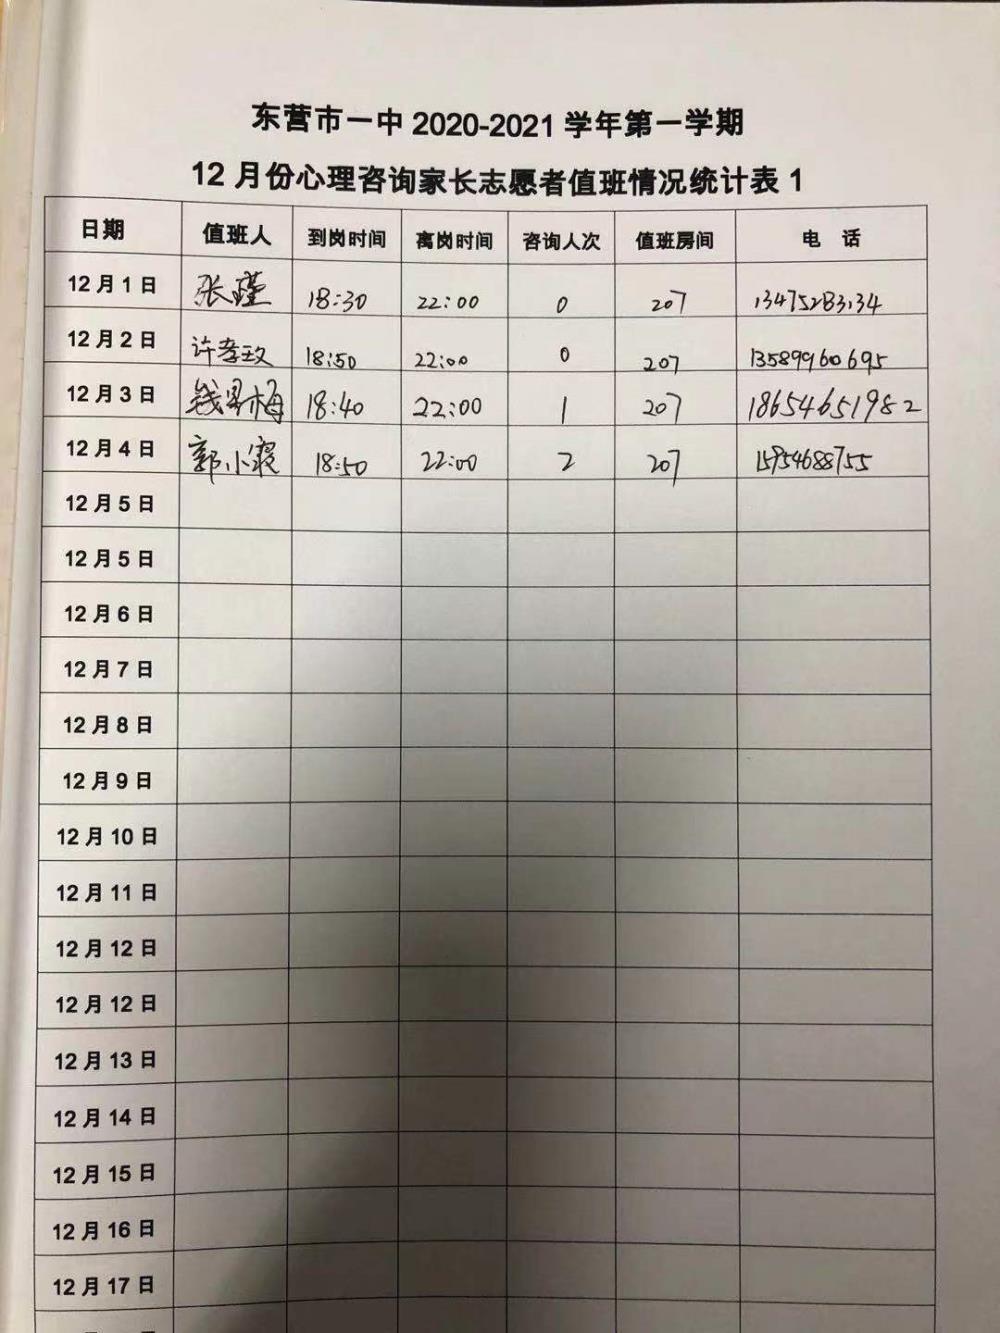 东营市一中 2020-2021 学年第一学期
12 月份心理咨询家长志愿者值班情况统计表 1
日期 值班人 到岗时间 离岗时间 咨询人次 值班房间 电 话
12 月 1 日 张瑾 18:30 22:00 0 207 13475283134
12 月 2 日 许孝玫 18:50 22:00 0 207 13589960695
12 月 3 日 钱 梅 18:40 22:00 1 207 18654651982
12 月 4 日 郭小 18:50 22:00 2 207 15954688755
12 月 5 日
12 月 5 日
12 月 6 日
12 月 7 日
12 月 8 日
12 月 9 日
12 月 10 日
12 月 11 日
12 月 12 日
12 月 12 日
12 月 13 日
12 月 14 日
12 月 15 日
12 月 16 日
12 月 17 日